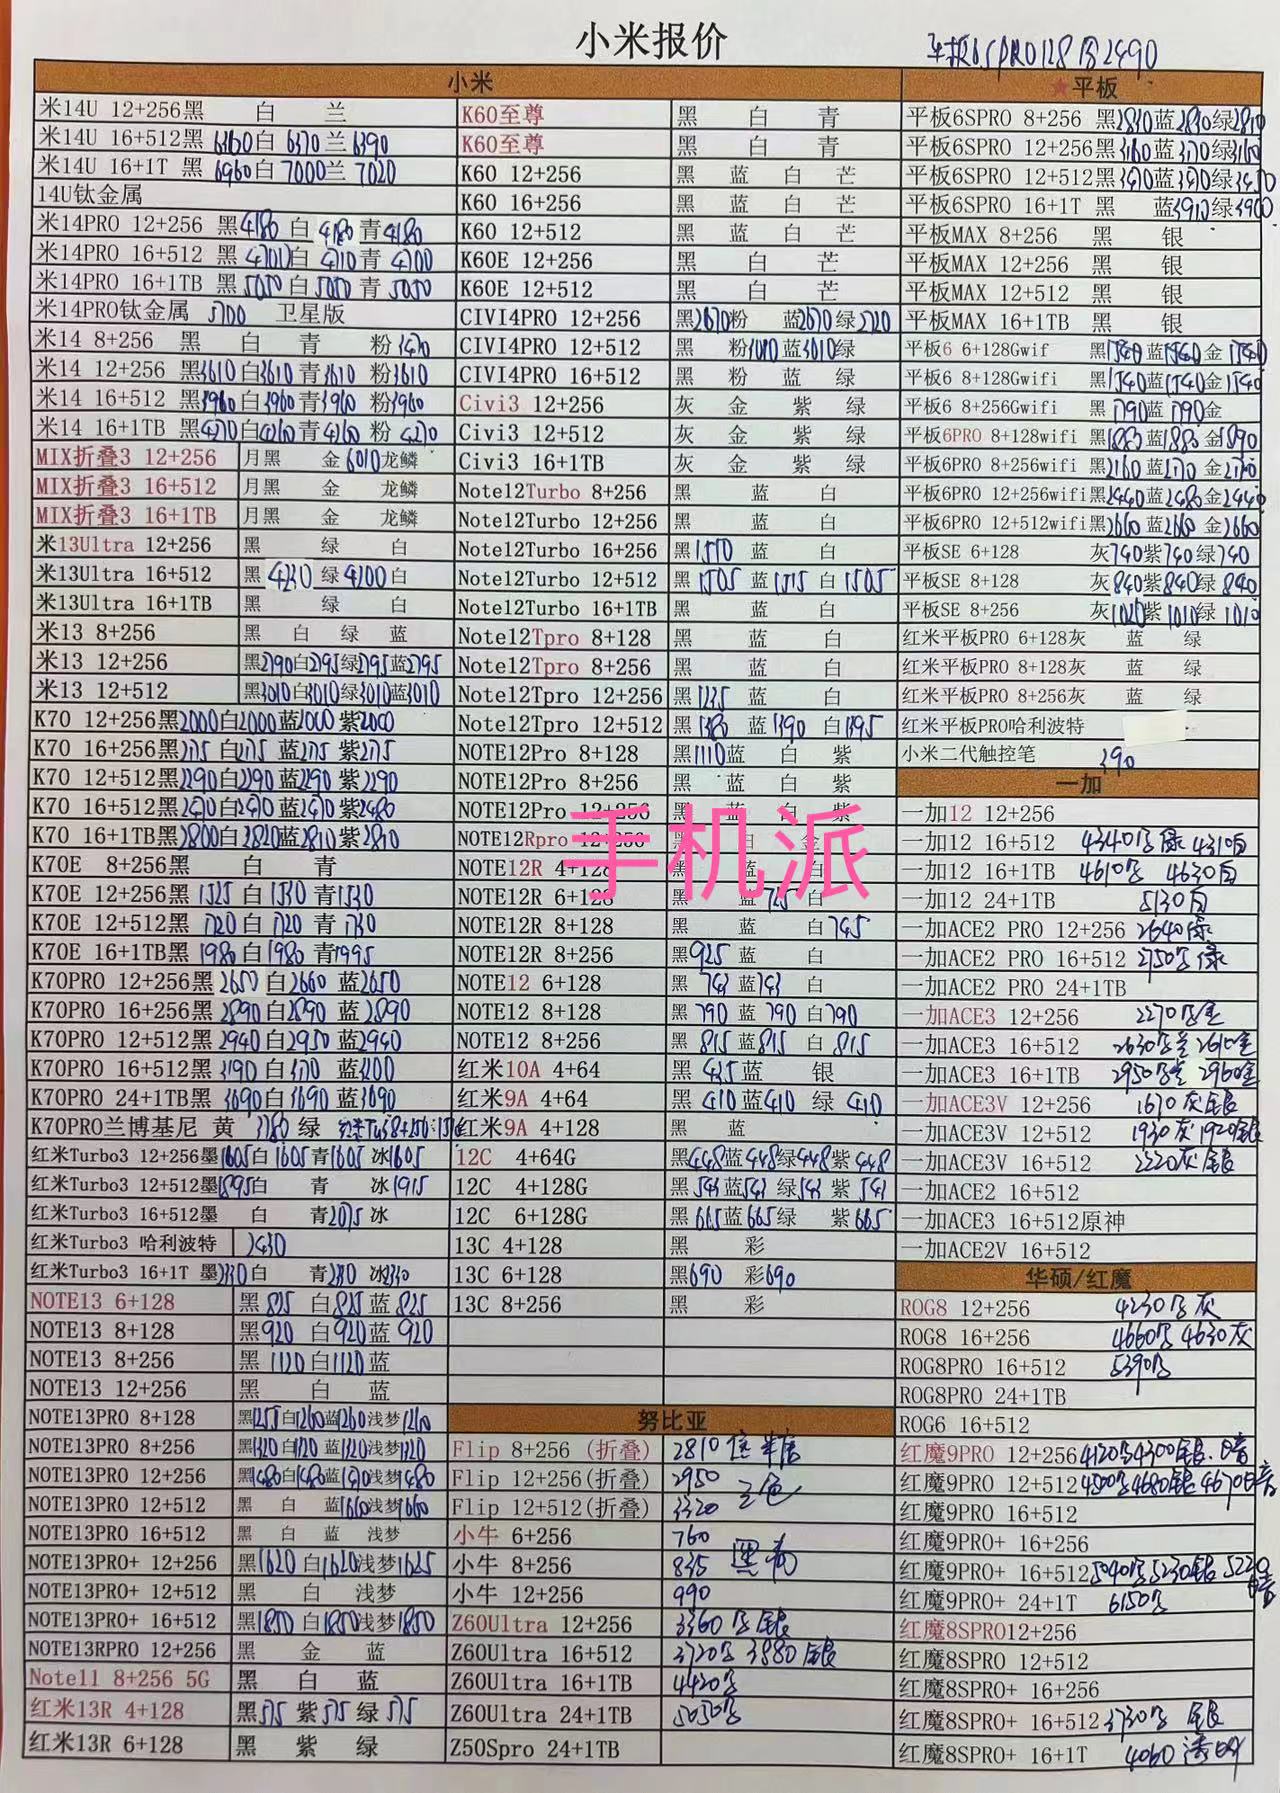 小米报价
平板6SPRO128 2490
小米
米14U 12+256黑 白 兰
米14U 16+512黑 6360白 6370兰 6390
米14U 16+1T 黑 6960白 7000兰 7020
14U钛金属
米14PRO 12+256 黑4180 白 4180 青4180
米14PRO 16+512 黑 白 4710青 4700
米14PRO 16+1TB 黑5050白5050 青 5050
米14PRO钛金属 5700 卫星版
米14 8+256 黑 白 青 粉3430
米14 12+256 黑3610白3610 青3610 粉3610
米14 16+512 黑3960白3960青3960 粉3960
米14 16+1TB 黑4270白4260青4260 粉 4270
MIX折叠3 12+256 月黑 金6010龙鳞
MIX折叠3 16+512 月黑 金 龙鳞
MIX折叠3 16+1TB 月黑 金 龙鳞
米13Ultra 12+256 黑 绿 白
米13Ultra 16+512 黑 4230 绿 4200白
米13Ultra 16+1TB 黑 绿 白
米13 8+256 黑 白 绿 蓝
米13 12+256 黑2790白2795绿2795蓝2795
米13 12+512 黑3010白3010绿3010蓝3010
K70 12+256黑2000白2000蓝2000 紫2000
K70 16+256黑2175 白2175 蓝2175 紫2175
K70 12+512黑2290白2290 蓝2290 紫2290
K70 16+512黑2470白2470蓝2470 紫2480
K70 16+1TB黑2800白2820蓝2810紫2810
K70E 8+256黑 白 青
K70E 12+256黑 1525 白 1530 青1530
K70E 12+512黑 1720白 1720 青 1730
K70E 16+1TB黑 1980白1980 青1995
K70PRO 12+256黑 2650 白2660 蓝2650
K70PRO 16+256黑 2890白2890 蓝2890
K70PRO 12+512黑 2940白2950 蓝2940
K70PRO 16+512黑 3190白3170 蓝3200
K70PRO 24+1TB黑 3690白3690 蓝3690
K70PRO兰博基尼 黄 3780 绿
红米Turbo3 12+256墨1605白1605青1605 冰1605
红米Turbo3 12+512墨1895白 青 冰1915
红米Turbo3 16+512墨 白 青2075 冰
红米Turbo3 哈利波特 2430
红米Turbo3 16+1T 墨2330白 青2330 冰2330
NOTE13 6+128 黑 825 白825 蓝 825
NOTE13 8+128 黑920 白920蓝 920
NOTE13 8+256 黑 1120白1120蓝
NOTE13 12+256 黑 白 蓝
NOTE13PRO 8+128 黑1255白1260蓝1260浅梦1260
NOTE13PRO 8+256 黑1320白1320 蓝1320浅梦1320
NOTE13PRO 12+256 黑1480白1480蓝1490浅梦1480
NOTE13PRO 12+512 黑 白 蓝1660浅梦1660
NOTE13PRO 16+512 黑 白 蓝 浅梦
NOTE13PRO+ 12+256 黑1620 白1620浅梦1625
NOTE13PRO+ 12+512 黑 白 浅梦
NOTE13PRO+ 16+512 黑1850 白1850浅梦1850
NOTE13RPRO 12+256 黑 金 蓝
Note11 8+256 5G 黑 白 蓝
红米13R 4+128 黑575 紫575 绿 575
红米13R 6+128 黑 紫 绿
K60至尊 黑 白 青
K60至尊 黑 白 青
K60 12+256 黑 蓝 白 芒
K60 16+256 黑 蓝 白 芒
K60 12+512 黑 蓝 白 芒
K60E 12+256 黑 白 芒
K60E 12+512 黑 白 芒
CIVI4PRO 12+256 黑2670粉 蓝2670 绿2720
CIVI4PRO 12+512 黑 粉3010蓝3010绿
CIVI4PRO 16+512 黑 粉 蓝 绿
Civi3 12+256 灰 金 紫 绿
Civi3 12+512 灰 金 紫 绿
Civi3 16+1TB 灰 金 紫 绿
Note12Turbo 8+256 黑 蓝 白
Note12Turbo 12+256 黑 蓝 白
Note12Turbo 16+256 黑1570 蓝 白
Note12Turbo 12+512 黑 1505 蓝 1515 白 1505
Note12Turbo 16+1TB 黑 蓝 白
Note12Tpro 8+128 黑 蓝 白
Note12Tpro 8+256 黑 蓝 白
Note12Tpro 12+256 黑1235 蓝 白
Note12Tpro 12+512 黑1380 蓝1390 白1395
NOTE12Pro 8+128 黑1110蓝 白 紫
NOTE12Pro 8+256 黑 蓝 白 紫
NOTE12Pro 12+256 黑 蓝 白 紫
NOTE12Rpro 12+256 黑 白 金
手机派
NOTE12R 4+128 黑 蓝 白
NOTE12R 6+128 黑 蓝 725 白
NOTE12R 8+128 黑 蓝 白745
NOTE12R 8+256 黑925 蓝 白
NOTE12 6+128 黑 743 蓝743 白
NOTE12 8+128 黑 790 蓝 790 白790
NOTE12 8+256 黑 815 蓝815 白 815
红米10A 4+64 黑 435蓝 银
红米9A 4+64 黑 410蓝410 绿 410
红米9A 4+128 黑 蓝
12C 4+64G 黑448蓝448绿448紫448
12C 4+128G 黑 543 蓝543 绿543 紫 543
12C 6+128G 黑 665蓝665绿 紫665
13C 4+128 黑 彩
13C 6+128 黑690 彩690
13C 8+256 黑 彩
努比亚
Flip 8+256 (折叠) 2810
Flip 12+256(折叠) 2950 三色
Flip 12+512(折叠) 3320
小牛 6+256 760
小牛 8+256 835
小牛 12+256 990
Z60Ultra 12+256 3360 银
Z60Ultra 16+512 3720 3880 银
Z60Ultra 16+1TB 4420
Z60Ultra 24+1TB 5050
Z50Spro 24+1TB
★平板
平板6SPRO 8+256 黑2810蓝2830绿2810
平板6SPRO 12+256黑3160蓝3170绿3160
平板6SPRO 12+512黑3490蓝3490绿3450
平板6SPRO 16+1T 黑 蓝3910绿3900
平板MAX 8+256 黑 银
平板MAX 12+256 黑 银
平板MAX 12+512 黑 银
平板MAX 16+1TB 黑 银
平板6 6+128Gwif 黑1540蓝1540金1540
平板6 8+128Gwifi 黑1540蓝1540金1540
平板6 8+256Gwifi 黑1790蓝1790金
平板6PRO 8+128wifi 黑1883蓝1880 金1890
平板6PRO 8+256wifi 黑2160蓝2170 金2170
平板6PRO 12+256wifi黑2440蓝2480金2440
平板6PRO 12+512wifi黑2660 蓝2660 金2660
平板SE 6+128 灰740紫740绿740
平板SE 8+128 灰840紫840绿 840
平板SE 8+256 灰1020紫1010绿 1010
红米平板PRO 6+128灰 蓝 绿
红米平板PRO 8+128灰 蓝 绿
红米平板PRO 8+256灰 蓝 绿
红米平板PRO哈利波特
小米二代触控笔 390
一加
一加12 12+256
一加12 16+512 4340 绿 4310白
一加12 16+1TB 4610 4630白
一加12 24+1TB 5130白
一加ACE2 PRO 12+256 2640绿
一加ACE2 PRO 16+512 2750 绿
一加ACE2 PRO 24+1TB
一加ACE3 12+256 2270
一加ACE3 16+512 2630 2610金
一加ACE3 16+1TB 2950 2960金
一加ACE3V 12+256 1670 灰 银
一加ACE3V 12+512 1930灰 1920银
一加ACE3V 16+512 2220灰 银
一加ACE2 16+512
一加ACE3 16+512原神
一加ACE2V 16+512
华硕/红魔
ROG8 12+256 4230 灰
ROG8 16+256 4660 4630灰
ROG8PRO 16+512 5390
ROG8PRO 24+1TB
ROG6 16+512
红魔9PRO 12+256 4120 4300银
红魔9PRO 12+512 4500 4680银 4670
红魔9PRO 16+512
红魔9PRO+ 16+256
红魔9PRO+ 16+512 5040 5230银 5220
红魔9PRO+ 24+1T 6150
红魔8SPRO12+256
红魔8SPRO 12+512
红魔8SPRO+ 16+256
红魔8SPRO+ 16+512 3730 银
红魔8SPRO+ 16+1T 4060 透明